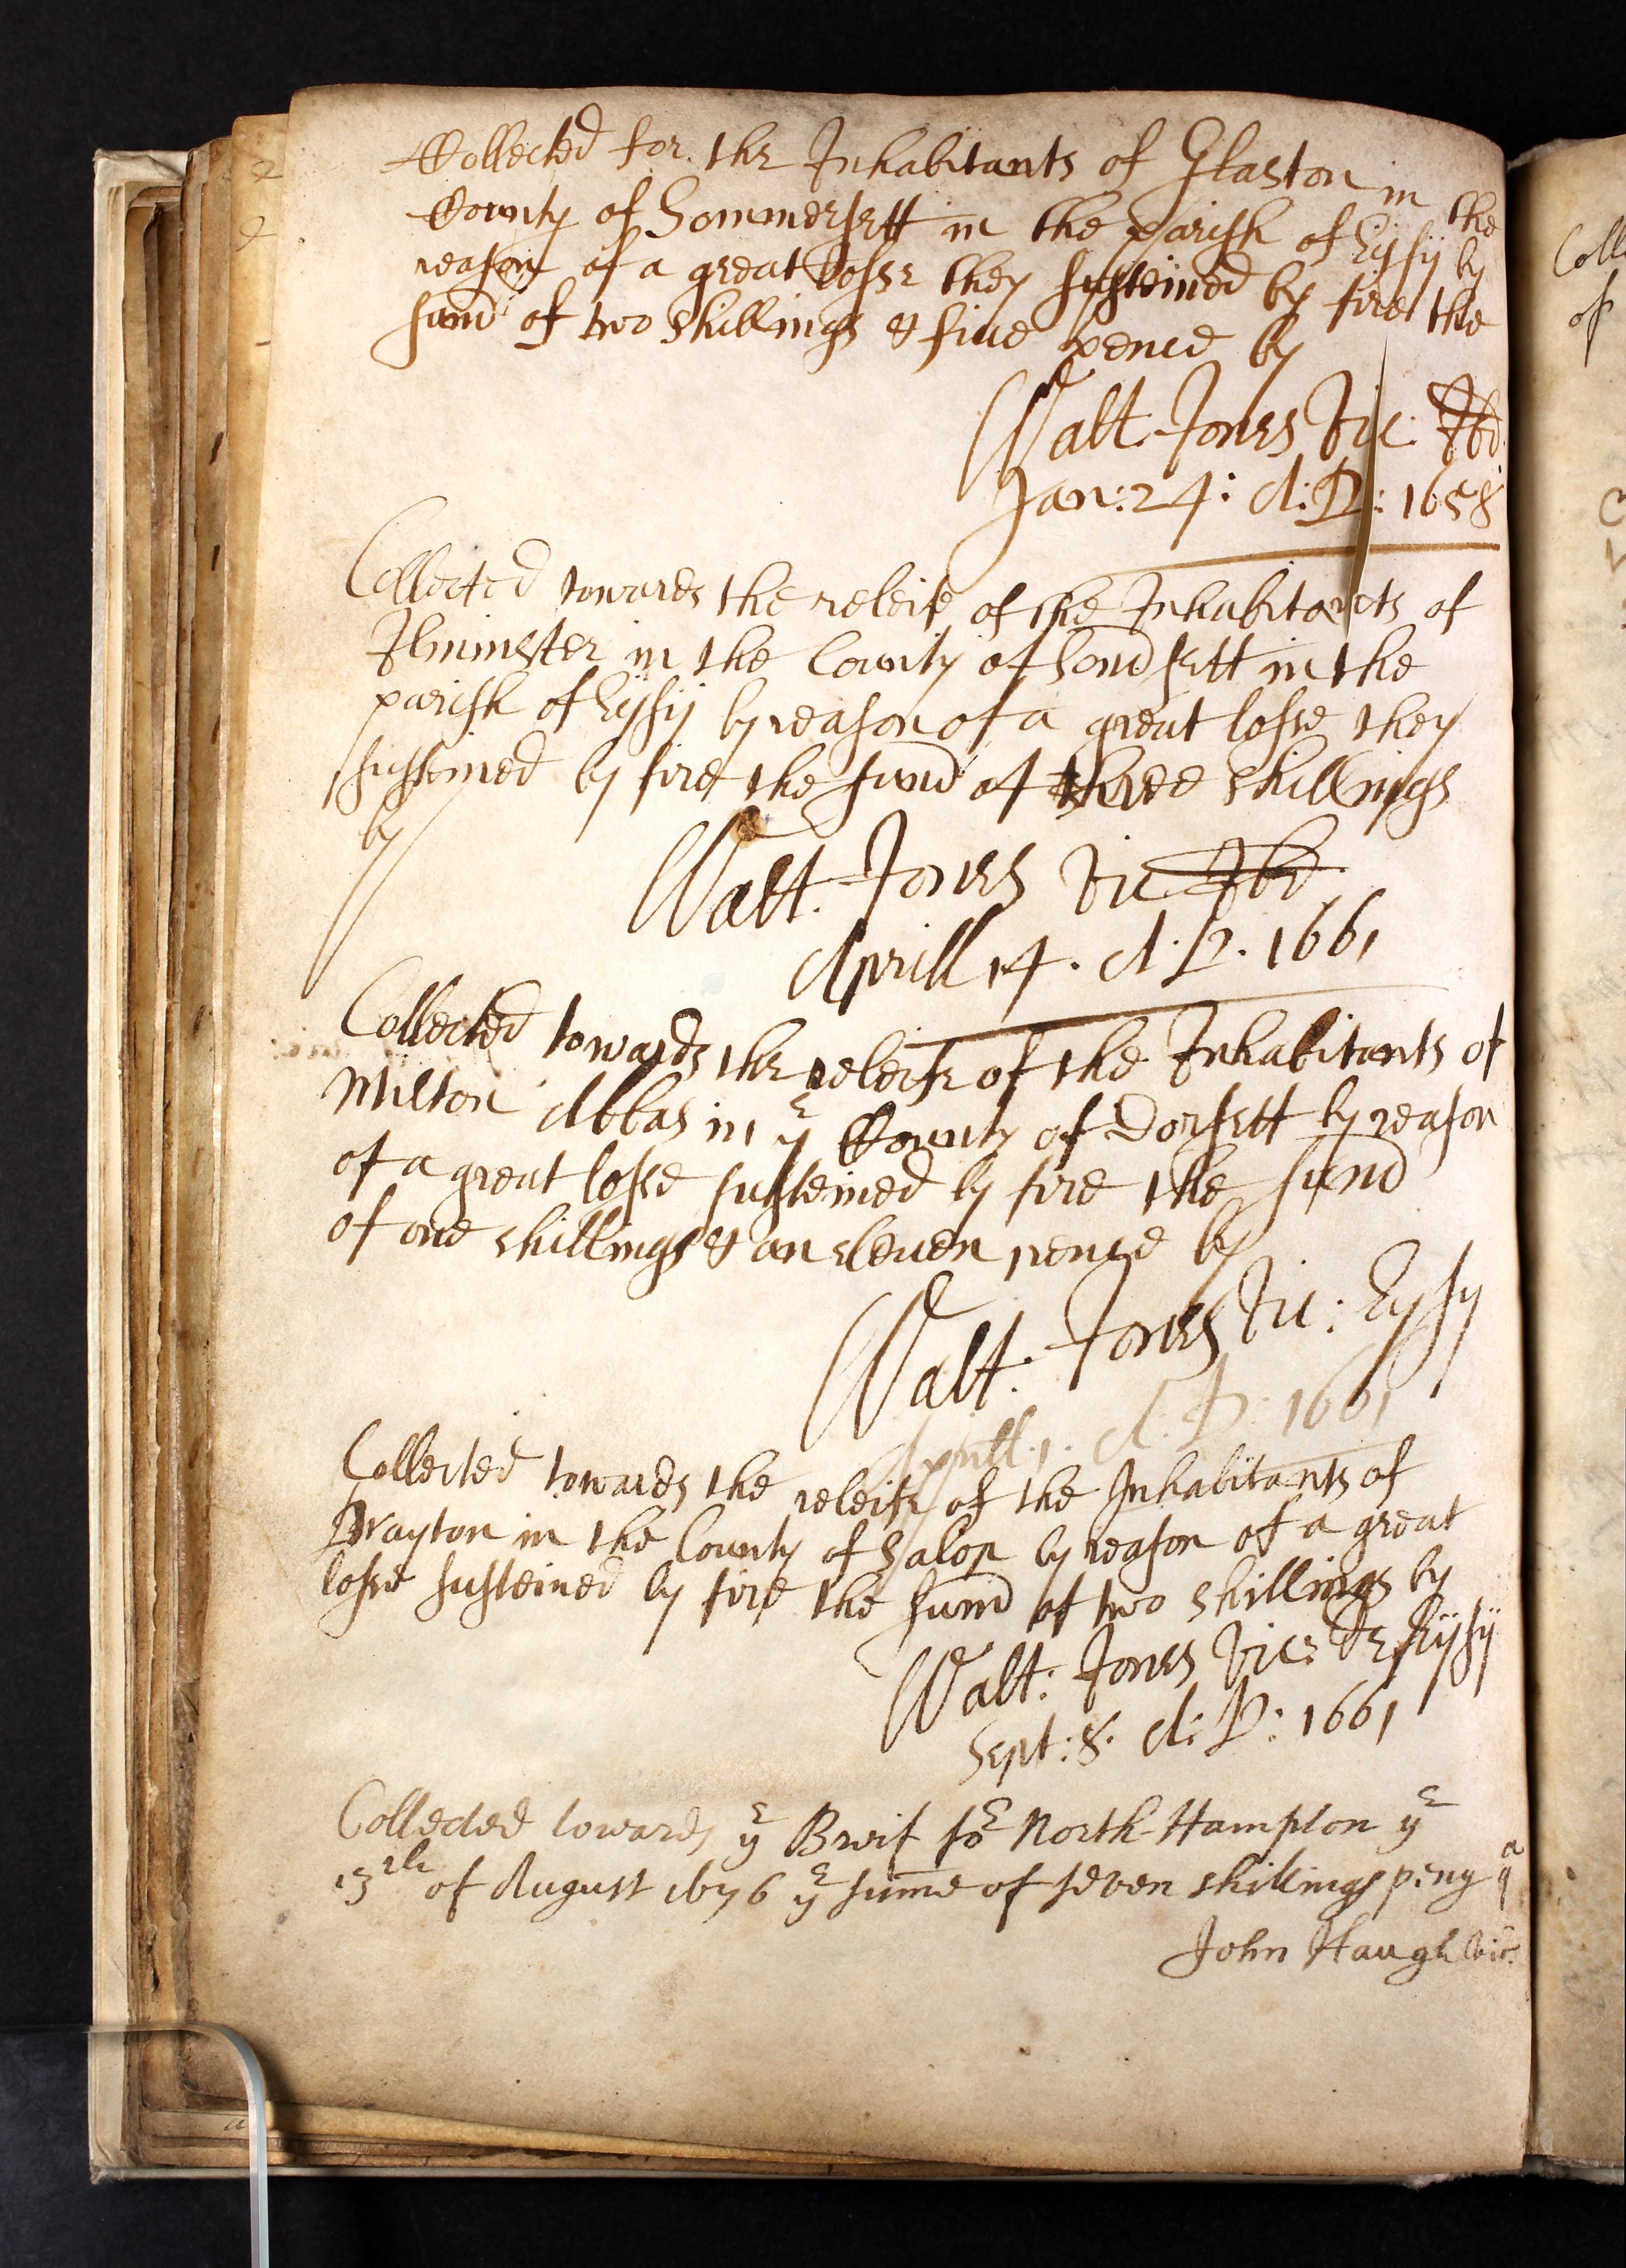 Collected for the Inhabitants of Glaston in the
County of Sommersett in the parish of Eysy by
reason of a great losse they susteined by fire the
sum̄ of two shillings & five pence by
Walt. Jones Vic: Ibd.
Jan: 24: A: D: 1658
Collected towards the releife of the Inhabitants of
Ilminster in the County of Som̄sett in the
parish of Eysy by reason of a great losse they
susteined by fire the sum̄ of three shillings
by
Walt. Jones Vic Ibd.
Aprill 14. A. D. 1661
Collected towards the releife of the Inhabitants of
Milton Abbas in ye County of Dorsett by reason
of a great losse susteined by fire the sum̄
of one shillings & an eleven pence by
Walt: Jones Vic: Eysy
Aprill. 1. A: D: 1661
Collected towards the releife of the Inhabitants of
Drayton in the County of Salop by reason of a great
losse susteined by fire the sum̄ of two shillings by
Walt: Jones Vic: de Eysy
Sept: 8. A: D: 1661
Collected towards ye Breif for North-Hampton ye
13th of August 1676 ye sum̄e of seven shillings
John Haugh Vic:
Colle
of